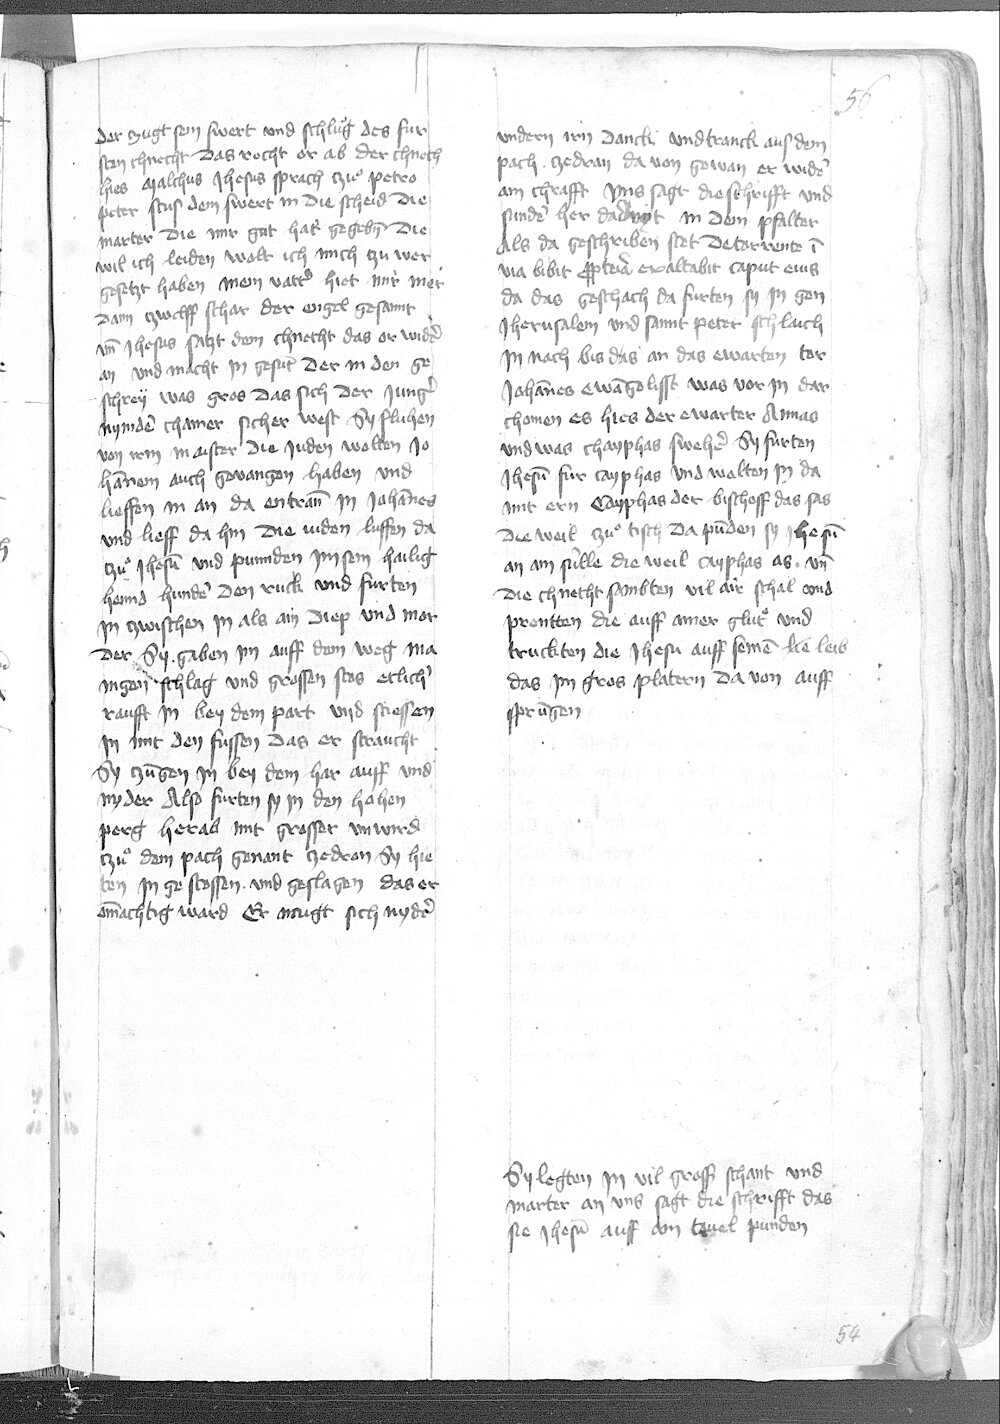 56
der zugt sein swert und schlůg des fur
sten chnecht Das recht or ab der chnech
hies Malchus Jhesus sprach tzů petro
peter stos dein swert in die scheid Die
marter die mir got hat gegebn̄ Die
wil ich leiden wolt ich mich tzu wer
gesetzt haben mein vatt' hiet mir mer
dann tzwelff schar der engel gesannt
vn̄ Jhesus satzt dem chnecht das or wider
an und macht in gesunt Der in den ge
schrey was gros das sich der Jung'
nymder chainer sicher west Sy fluhen
von irm maister die Juden wolten Jo
hannem auch gevangen haben und
lieffen in an da entran in Johannes
und lieff da hin Die iuden luffen da
tzů Jhesū und punnden im sein heilig
hennd hinder den ruck und furten
in tzwischen in als ain diep und mor
der Sy gaben im auff dem weg ma
ingen schlag und grossen stos etlich'
raufft in bey dem part und stiessen
in mit den fussen das er straucht
Sy tzugen in bey dem har auff und
nyder Also furten sy in den hohen
perg herab mit grosser unwird
tzů dem pach genant tzedron Sy hie
ten in gestossen und geslagen das er
omachtig ward Er naigt sich nyder
undern irn danck und tranck aus dem
pach tzedron da von gewan er wider
ain chrafft Uns sagt die schrifft und
sunder her davyt in dem psalter
Als da geschriben stet De torrente ī
via bibit propterea exaltabit caput eius
da das geschach da furten sy in gen
Jherusalem und sannt peter schlaich
in nach bis das an das ewarten tor
Johannes ewangelisst was vor in dar
chomen es hies der ewarter Annas
und was chayphas sweher Sy furten
Jhesū fur cayphas und wolten in da
mit ern Cayphas der bischoff das sas
die weil tzů tisch Da punden sy Jhesū
an ain sull die weil cayphas as vn̄
die chnecht sambten vil air schal und
prentten die auff ainer glůt und
truckten die Jhesu auff seinē leib
das im gros platern da von auff
sprungen
Sy legten in vil gross schant und
marter an uns sagt die schrifft das
sie Jhesū auff ain tauel punden
54